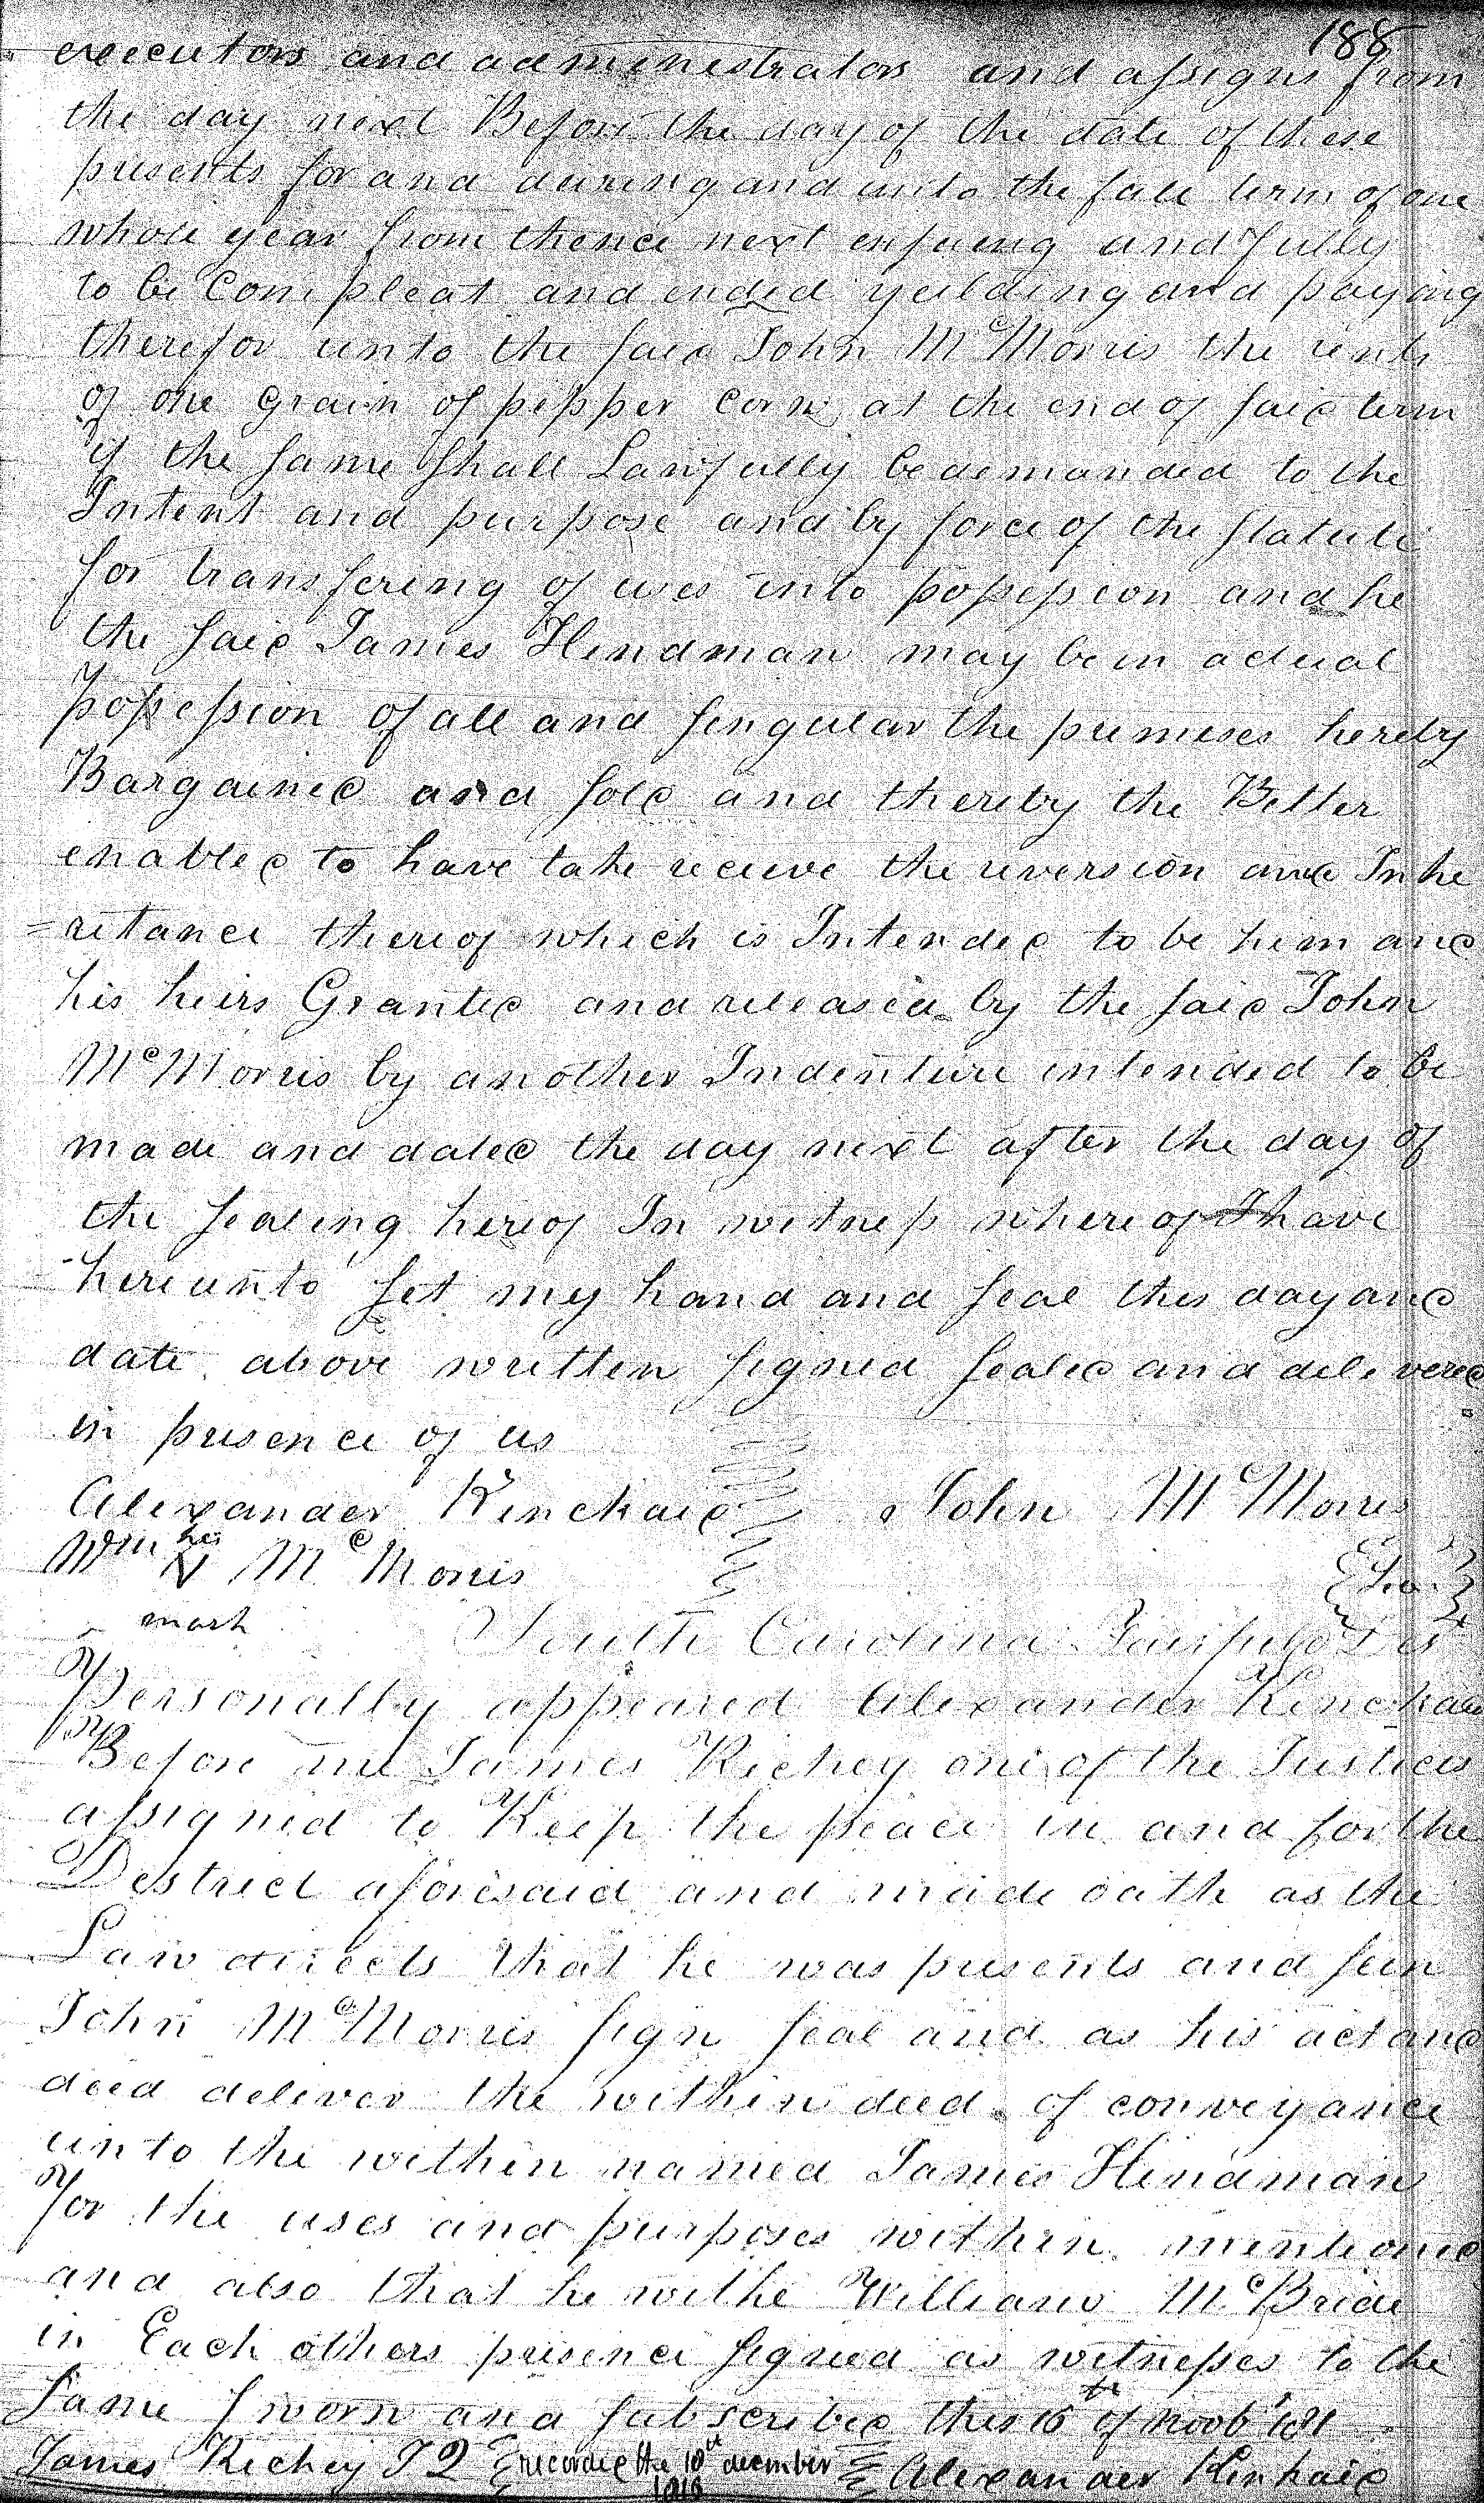 188
executors and administrators and assigns from
the day next Before the day of the date of these
presents for and during and unto the full term of one
whole year from thence next ensuing and fully
to be Compleat and ended yeilding and paying
therefor unto the said John McMorris the rents
of one Grain of pepper Corn at the end of said term
if the same shall Lawfully be demanded to the
Intent and purpose and by force of the statute
for transfering of uses into possession and he
the said James Hindman may be in actual
possession of all and singular the premises hereby
Bargained and sold and thereby the Better
enabled to have take receive the reversion and Inhe
=ritance thereof which is Intended to be him and
his heirs Granted and released by the said John
McMorris by another Indenture intended to be
made and dated the day next after the day of
the sealing hereof In witness whereof I have
hereunto set my hand and seal this day and
date above written signed sealed and delivered
in presence of us
Alexander Kinckaid John McMorris
Wm his N McMorris
mark
South Carolina Fairfield Dis
Personally appeared Alexander Kinckaid
Before me James Richey one of the Justices
assigned to Keep the peace in and for the
District aforesaid and made oath as the
Law directs that he was presents and seen
John McMorris sign seal and as his act and
deed deliver the within deed of conveyance
unto the within named James Hindman
for the uses and purposes within mentioned
and also that he withe William McBride
in Each others presence signed as witnesses to the
same sworn and subscribed this 16th of
James Richey J Q recorded the 10th december 1818 Alexander Kinkaid